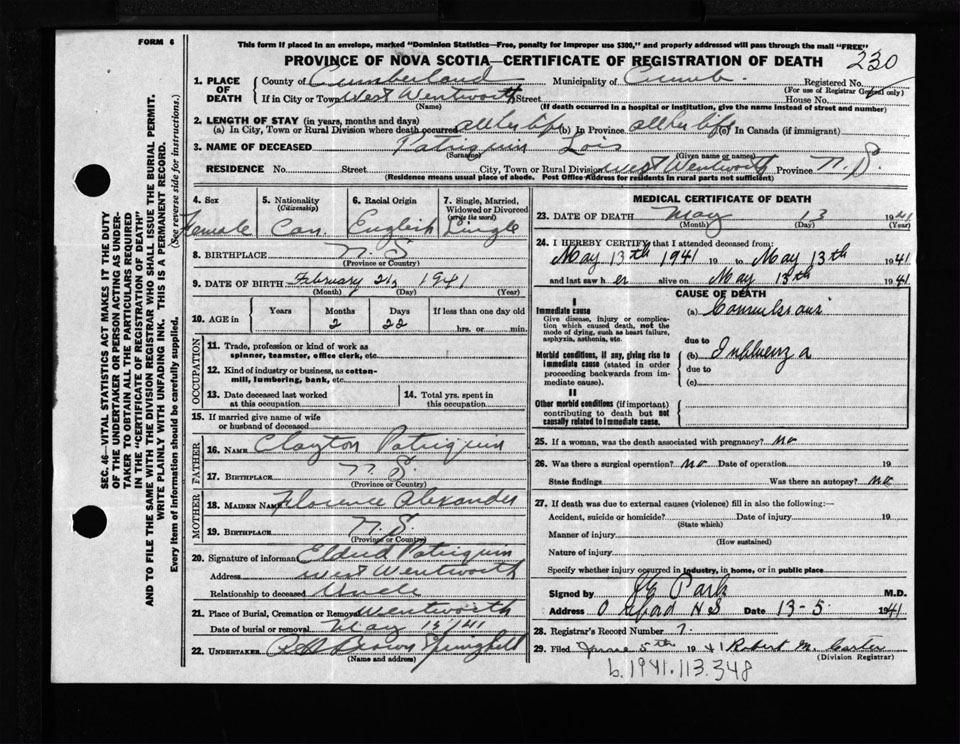 FORM 6
This form if placed in an envelope, marked "Dominion Statistics—Free, penalty for improper use $300," and properly addressed will pass through the mail "FREE"
PROVINCE OF NOVA SCOTIA—CERTIFICATE OF REGISTRATION OF DEATH 230
1. PLACE OF DEATH County of Cumberland Municipality of Cumb. Registered No.
(For use of Registrar General only)
If in City or Town West Wentworth Street House No.
(Name) (If death occurred in a hospital or institution, give the name instead of street and number)
2. LENGTH OF STAY (in years, months and days)
(a) In City, Town or Rural Division where death occurred all her life (b) In Province all her life (c) In Canada (if immigrant)
3. NAME OF DECEASED Patriquin Lois
(Surname) (Given name or names)
RESIDENCE No. Street City, Town or Rural Division West Wentworth Province N.S.
(Residence means usual place of abode. Post Office Address for residents in rural parts not sufficient)
4. Sex Female
5. Nationality (Citizenship) Can
6. Racial Origin English
7. Single, Married, Widowed or Divorced (write the word) Single
8. BIRTHPLACE N.S.
(Province or Country)
9. DATE OF BIRTH February 21, 1941
(Month) (Day) (Year)
10. AGE in Years Months 2 Days 22 If less than one day old hrs. or min.
OCCUPATION
11. Trade, profession or kind of work as spinner, teamster, office clerk, etc.
12. Kind of industry or business, as cotton-mill, lumbering, bank, etc.
13. Date deceased last worked at this occupation
14. Total yrs. spent in this occupation
15. If married give name of wife or husband of deceased
FATHER
16. NAME Clayton Patriquin
17. BIRTHPLACE N.S.
(Province or Country)
MOTHER
18. MAIDEN NAME Florence Alexander
19. BIRTHPLACE N.S.
(Province or Country)
20. Signature of informant Eldred Patriquin
Address West Wentworth
Relationship to deceased Uncle
21. Place of Burial, Cremation or Removal Wentworth
Date of burial or removal May 15/41
22. UNDERTAKER Brown Springhill
(Name and address)
MEDICAL CERTIFICATE OF DEATH
23. DATE OF DEATH May 13 1941
(Month) (Day) (Year)
24. I HEREBY CERTIFY that I attended deceased from:
May 13th 1941 19 to May 13th 1941
and last saw her alive on May 13th 1941
CAUSE OF DEATH
I
Immediate cause (a) Convulsions
Give disease, injury or complication which caused death, not the mode of dying, such as heart failure, asphyxia, asthenia, etc.
due to
Morbid conditions, if any, giving rise to immediate cause (stated in order proceeding backwards from immediate cause). (b) Influenza
due to
(c)
II
Other morbid conditions (if important) contributing to death but not causally related to immediate cause.
25. If a woman, was the death associated with pregnancy? no
26. Was there a surgical operation? no Date of operation 19
State findings Was there an autopsy? no
27. If death was due to external causes (violence) fill in also the following:—
Accident, suicide or homicide? Date of injury 19
(State which)
Manner of injury
(How sustained)
Nature of injury
Specify whether injury occurred in industry, in home, or in public place
Signed by Park M.D.
Address Oxford N.S. Date 13-5. 1941
28. Registrar's Record Number 7.
29. Filed June 5th 1941 Robert M. Carter
(Division Registrar)
b.1941.113.348
SEC. 46—VITAL STATISTICS ACT MAKES IT THE DUTY
OF THE UNDERTAKER OR PERSON ACTING AS UNDER-
TAKER TO OBTAIN ALL THE PARTICULARS REQUIRED
IN THE "CERTIFICATE OF REGISTRATION OF DEATH"
AND TO FILE THE SAME WITH THE DIVISION REGISTRAR WHO SHALL ISSUE THE BURIAL PERMIT.
WRITE PLAINLY WITH UNFADING INK. THIS IS A PERMANENT RECORD.
Every item of information should be carefully supplied. (See reverse side for instructions.)